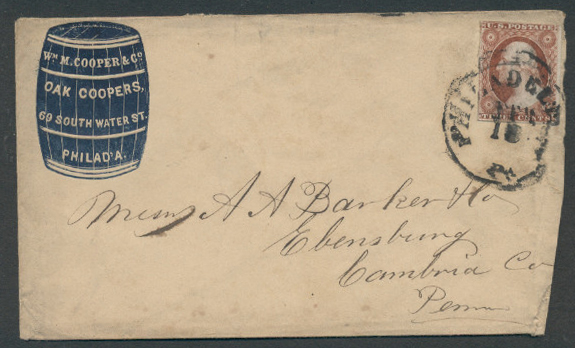 Wm M. COOPER & Co
OAK COOPERS,
69 SOUTH WATER ST.
PHILAD'A.
U.S. POSTAGE
THREE CENTS
PHILADEL
18
PA
Messrs A A Barker & Co
Ebensburg
Cambria Co
Penna